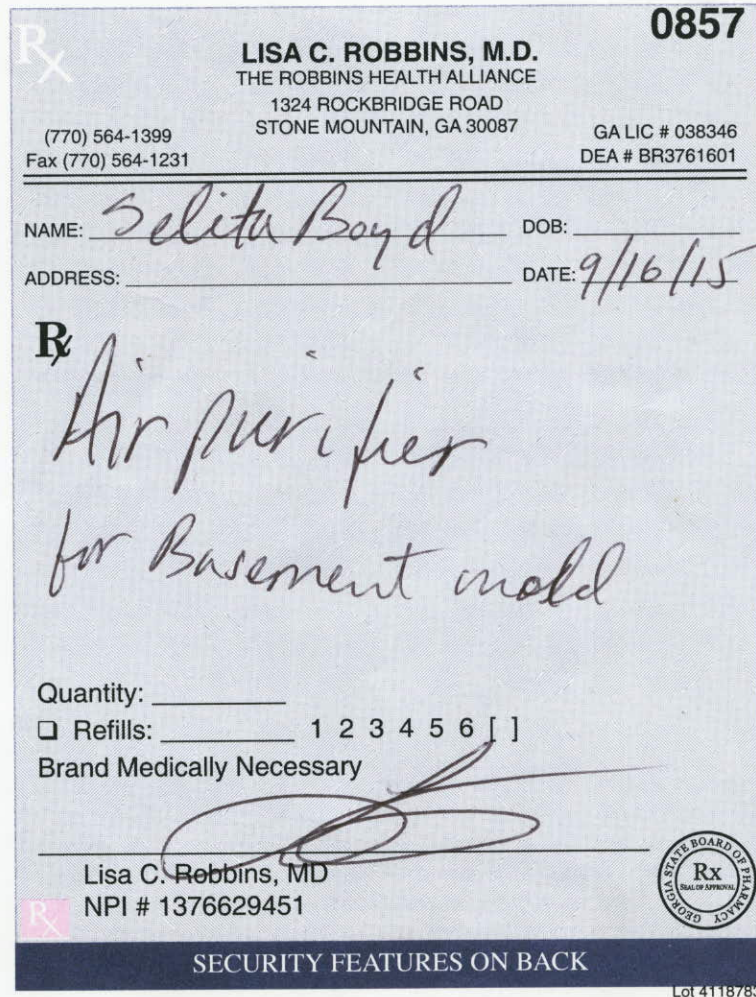 0857
Rx
LISA C. ROBBINS, M.D.
THE ROBBINS HEALTH ALLIANCE
1324 ROCKBRIDGE ROAD
STONE MOUNTAIN, GA 30087
(770) 564-1399
Fax (770) 564-1231
GA LIC # 038346
DEA # BR3761601
NAME: Selita Boyd DOB:
ADDRESS: DATE: 9/16/15
Rx
Air purifier
for Basement mold
Quantity:
❑ Refills: 1 2 3 4 5 6 [ ]
Brand Medically Necessary
Lisa C. Robbins, MD
NPI # 1376629451
Rx
GEORGIA STATE BOARD OF PHARMACY
Rx
SEAL OF APPROVAL
SECURITY FEATURES ON BACK
Lot 4118783